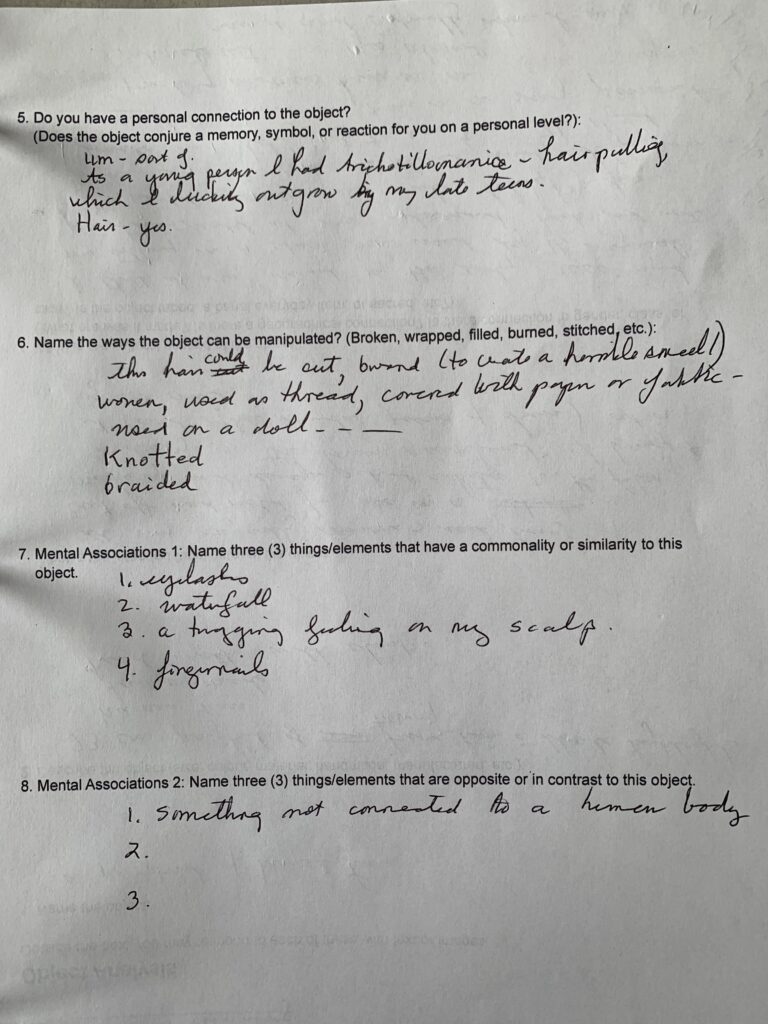 5. Do you have a personal connection to the object?
(Does the object conjure a memory, symbol, or reaction for you on a personal level?):
um - sort of.
As a young person I had trichotillomanica - hair pulling,
which I luckily outgrow by my late teens.
Hair - yes.
6. Name the ways the object can be manipulated? (Broken, wrapped, filled, burned, stitched, etc.):
This hair could be cut, burned (to create a horrible smell!)
woven, used as thread, covered with paper or fabric -
used on a doll - - —
Knotted
braided
7. Mental Associations 1: Name three (3) things/elements that have a commonality or similarity to this
object.
1. eyelashes
2. waterfall
3. a tugging feeling on my scalp.
4. fingernails
8. Mental Associations 2: Name three (3) things/elements that are opposite or in contrast to this object.
1. Something not connected to a human body
2.
3.
Object Analysis